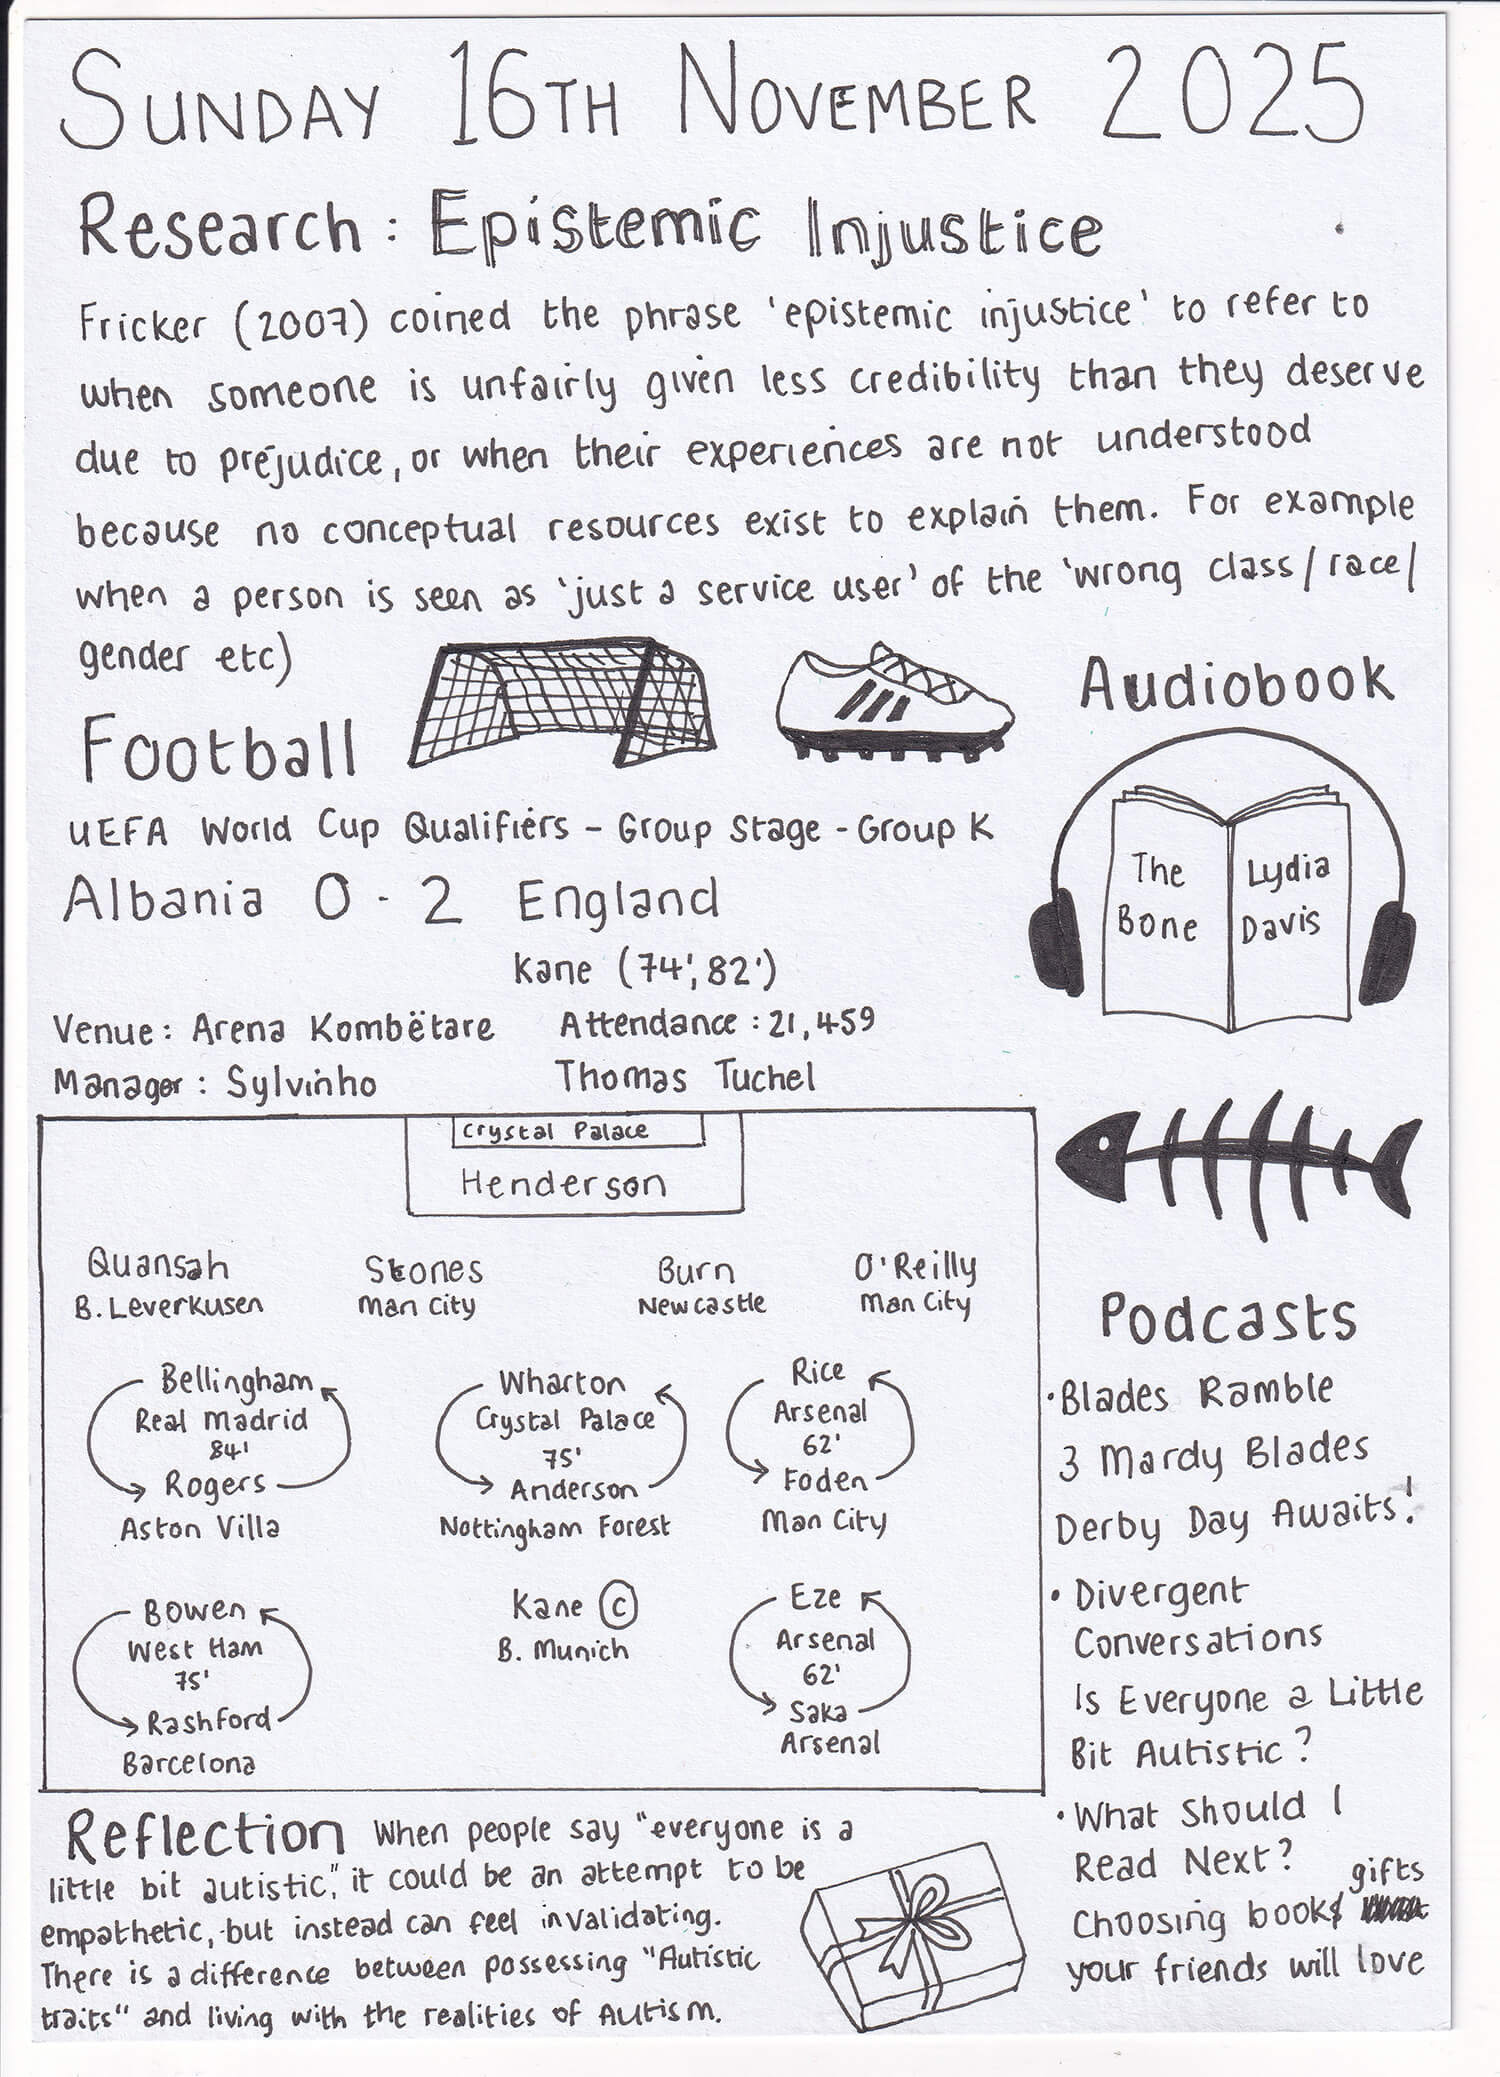 SUNDAY 16TH NOVEMBER 2025
Research: Epistemic Injustice
Fricker (2007) coined the phrase 'epistemic injustice' to refer to
when someone is unfairly given less credibility than they deserve
due to prejudice, or when their experiences are not understood
because no conceptual resources exist to explain them. For example
when a person is seen as 'just a service user' of the 'wrong class/race/
gender etc)
Football
UEFA World Cup Qualifiers - Group Stage - Group K
Albania 0 - 2 England
Kane (74', 82')
Venue: Arena Kombëtare Attendance: 21,459
Manager: Sylvinho Thomas Tuchel
Crystal Palace
Henderson
Quansah Stones Burn O'Reilly
B. Leverkusen Man City Newcastle Man City
Bellingham Wharton Rice
Real Madrid Crystal Palace Arsenal
84' 75' 62'
Rogers Anderson Foden
Aston Villa Nottingham Forest Man City
Bowen Kane C Eze
West Ham B. Munich Arsenal
75' 62'
Rashford Saka
Barcelona Arsenal
Audiobook
The Lydia
Bone Davis
Podcasts
• Blades Ramble
3 Mardy Blades
Derby Day Awaits!
• Divergent
Conversations
Is Everyone a Little
Bit Autistic?
• What Should I
Read Next?
gifts
Choosing book
your friends will love
Reflection When people say "everyone is a
little bit autistic", it could be an attempt to be
empathetic, but instead can feel invalidating.
There is a difference between possessing "Autistic
traits" and living with the realities of Autism.